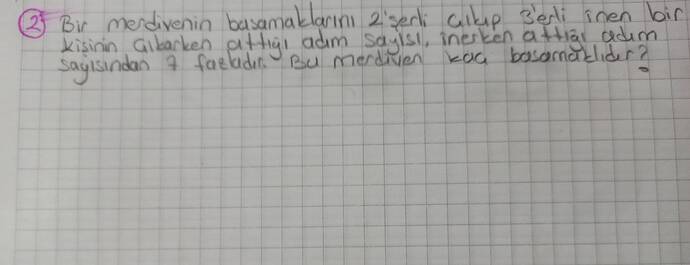 2) Bir merdivenin basamaklarını 2'şerli çıkıp 3'erli inen bir
kişinin çıkarken attığı adım sayısı, inerken attığı adım
sayısından 7 fazladır. Bu merdiven kaç basamaklıdır?